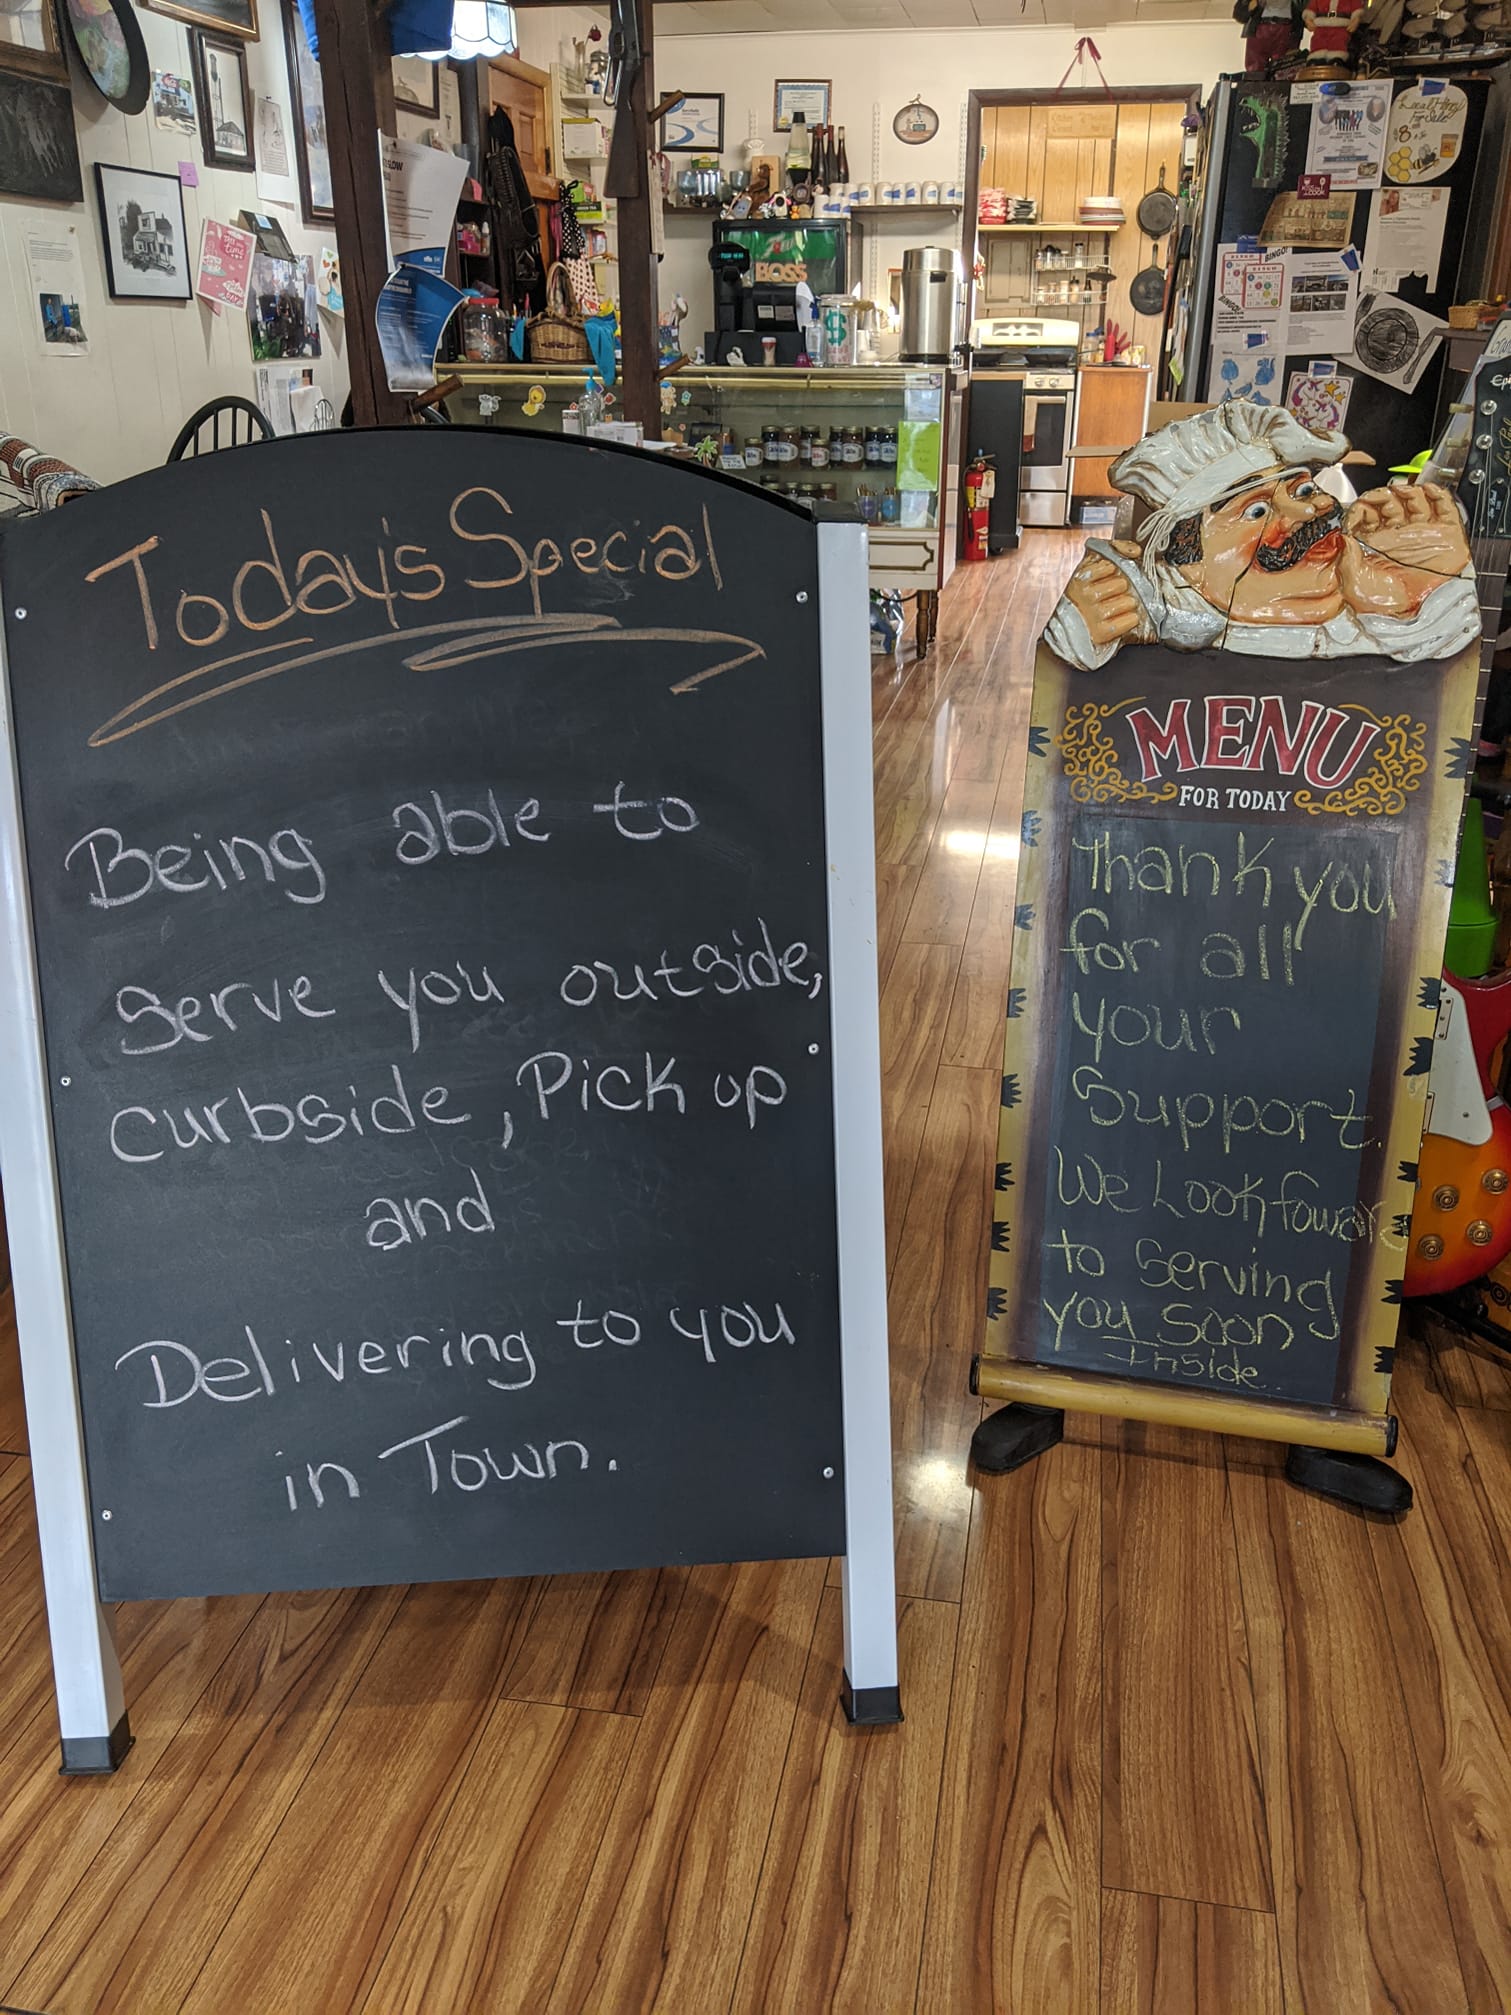 Today's Special
Being able to
Serve you outside,
curbside, Pick up
and
Delivering to you
in Town.
MENU
FOR TODAY
Thank you
for all
your
Support.
We Look Foward
to Serving
you Soon
Inside.
BOSS
$
Local Honey
For Sale
$8
BINGO
BINGO